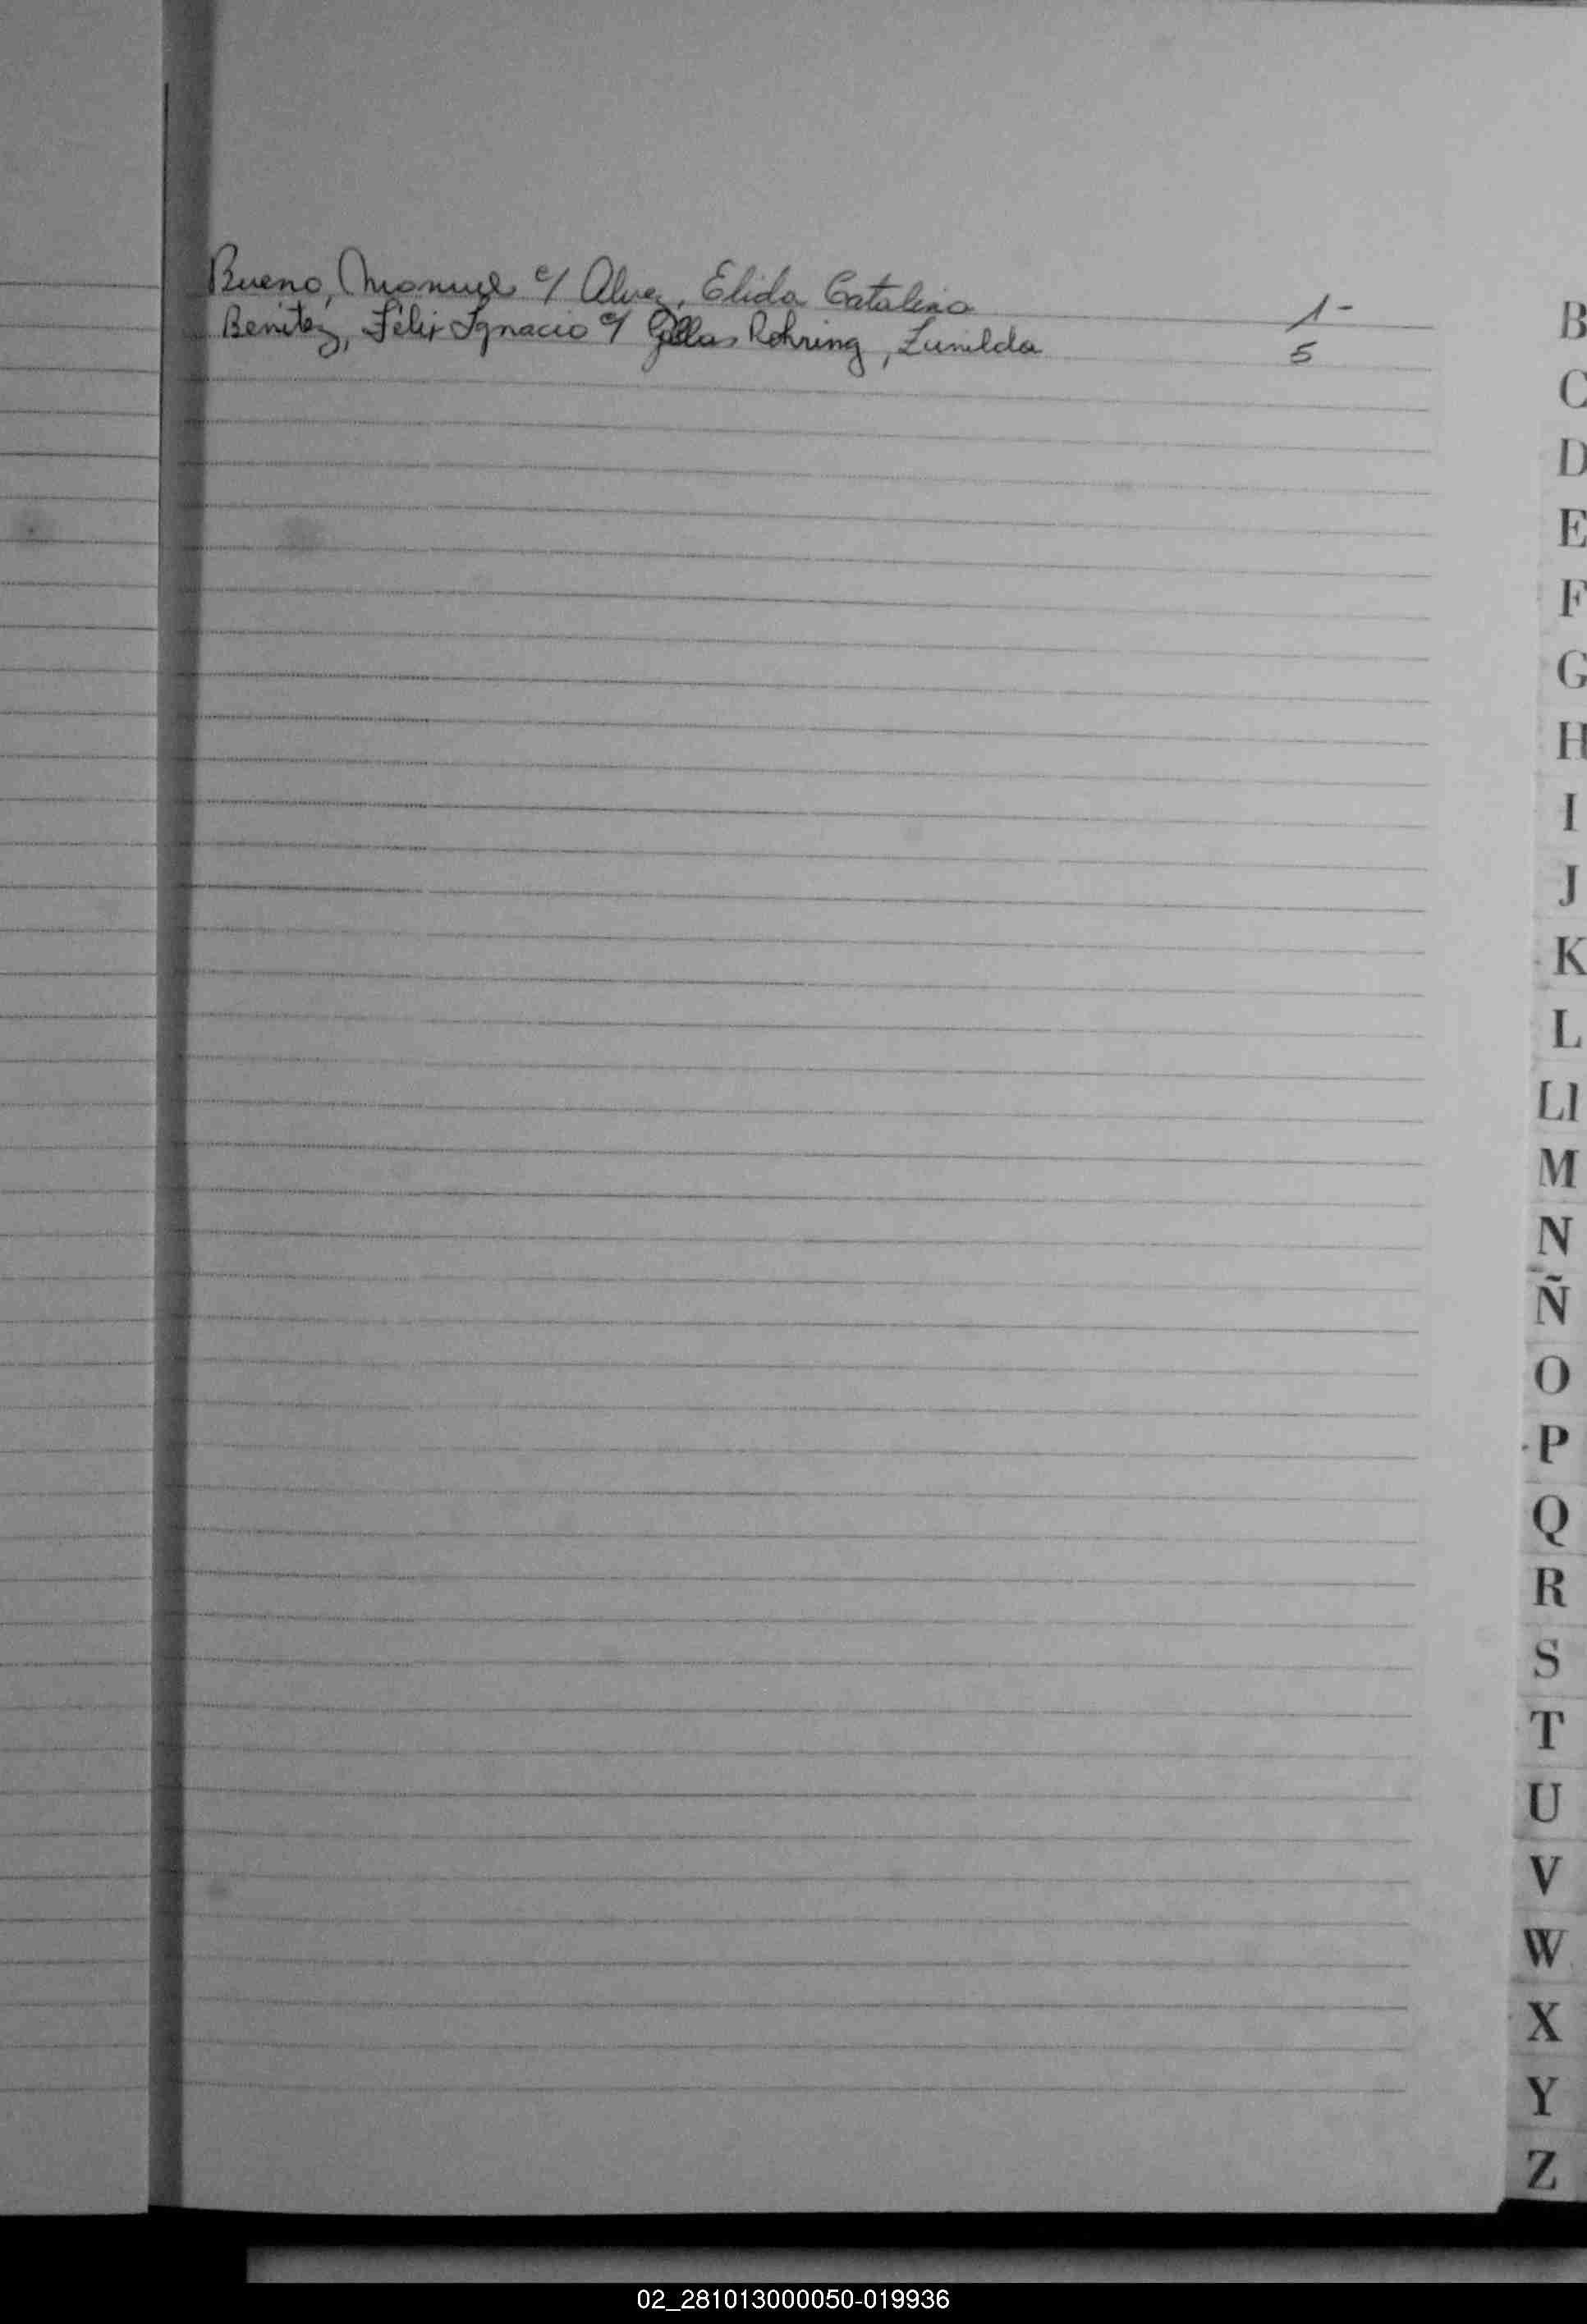 Bueno, Manuel c/ Alvez, Elida Catalina 1-
Benitez, Félix Ignacio c/ Rohring, Zunilda 5
B
C
D
E
F
G
H
I
J
K
L
Ll
M
N
Ñ
O
P
Q
R
S
T
U
V
W
X
Y
Z
02_281013000050-019936